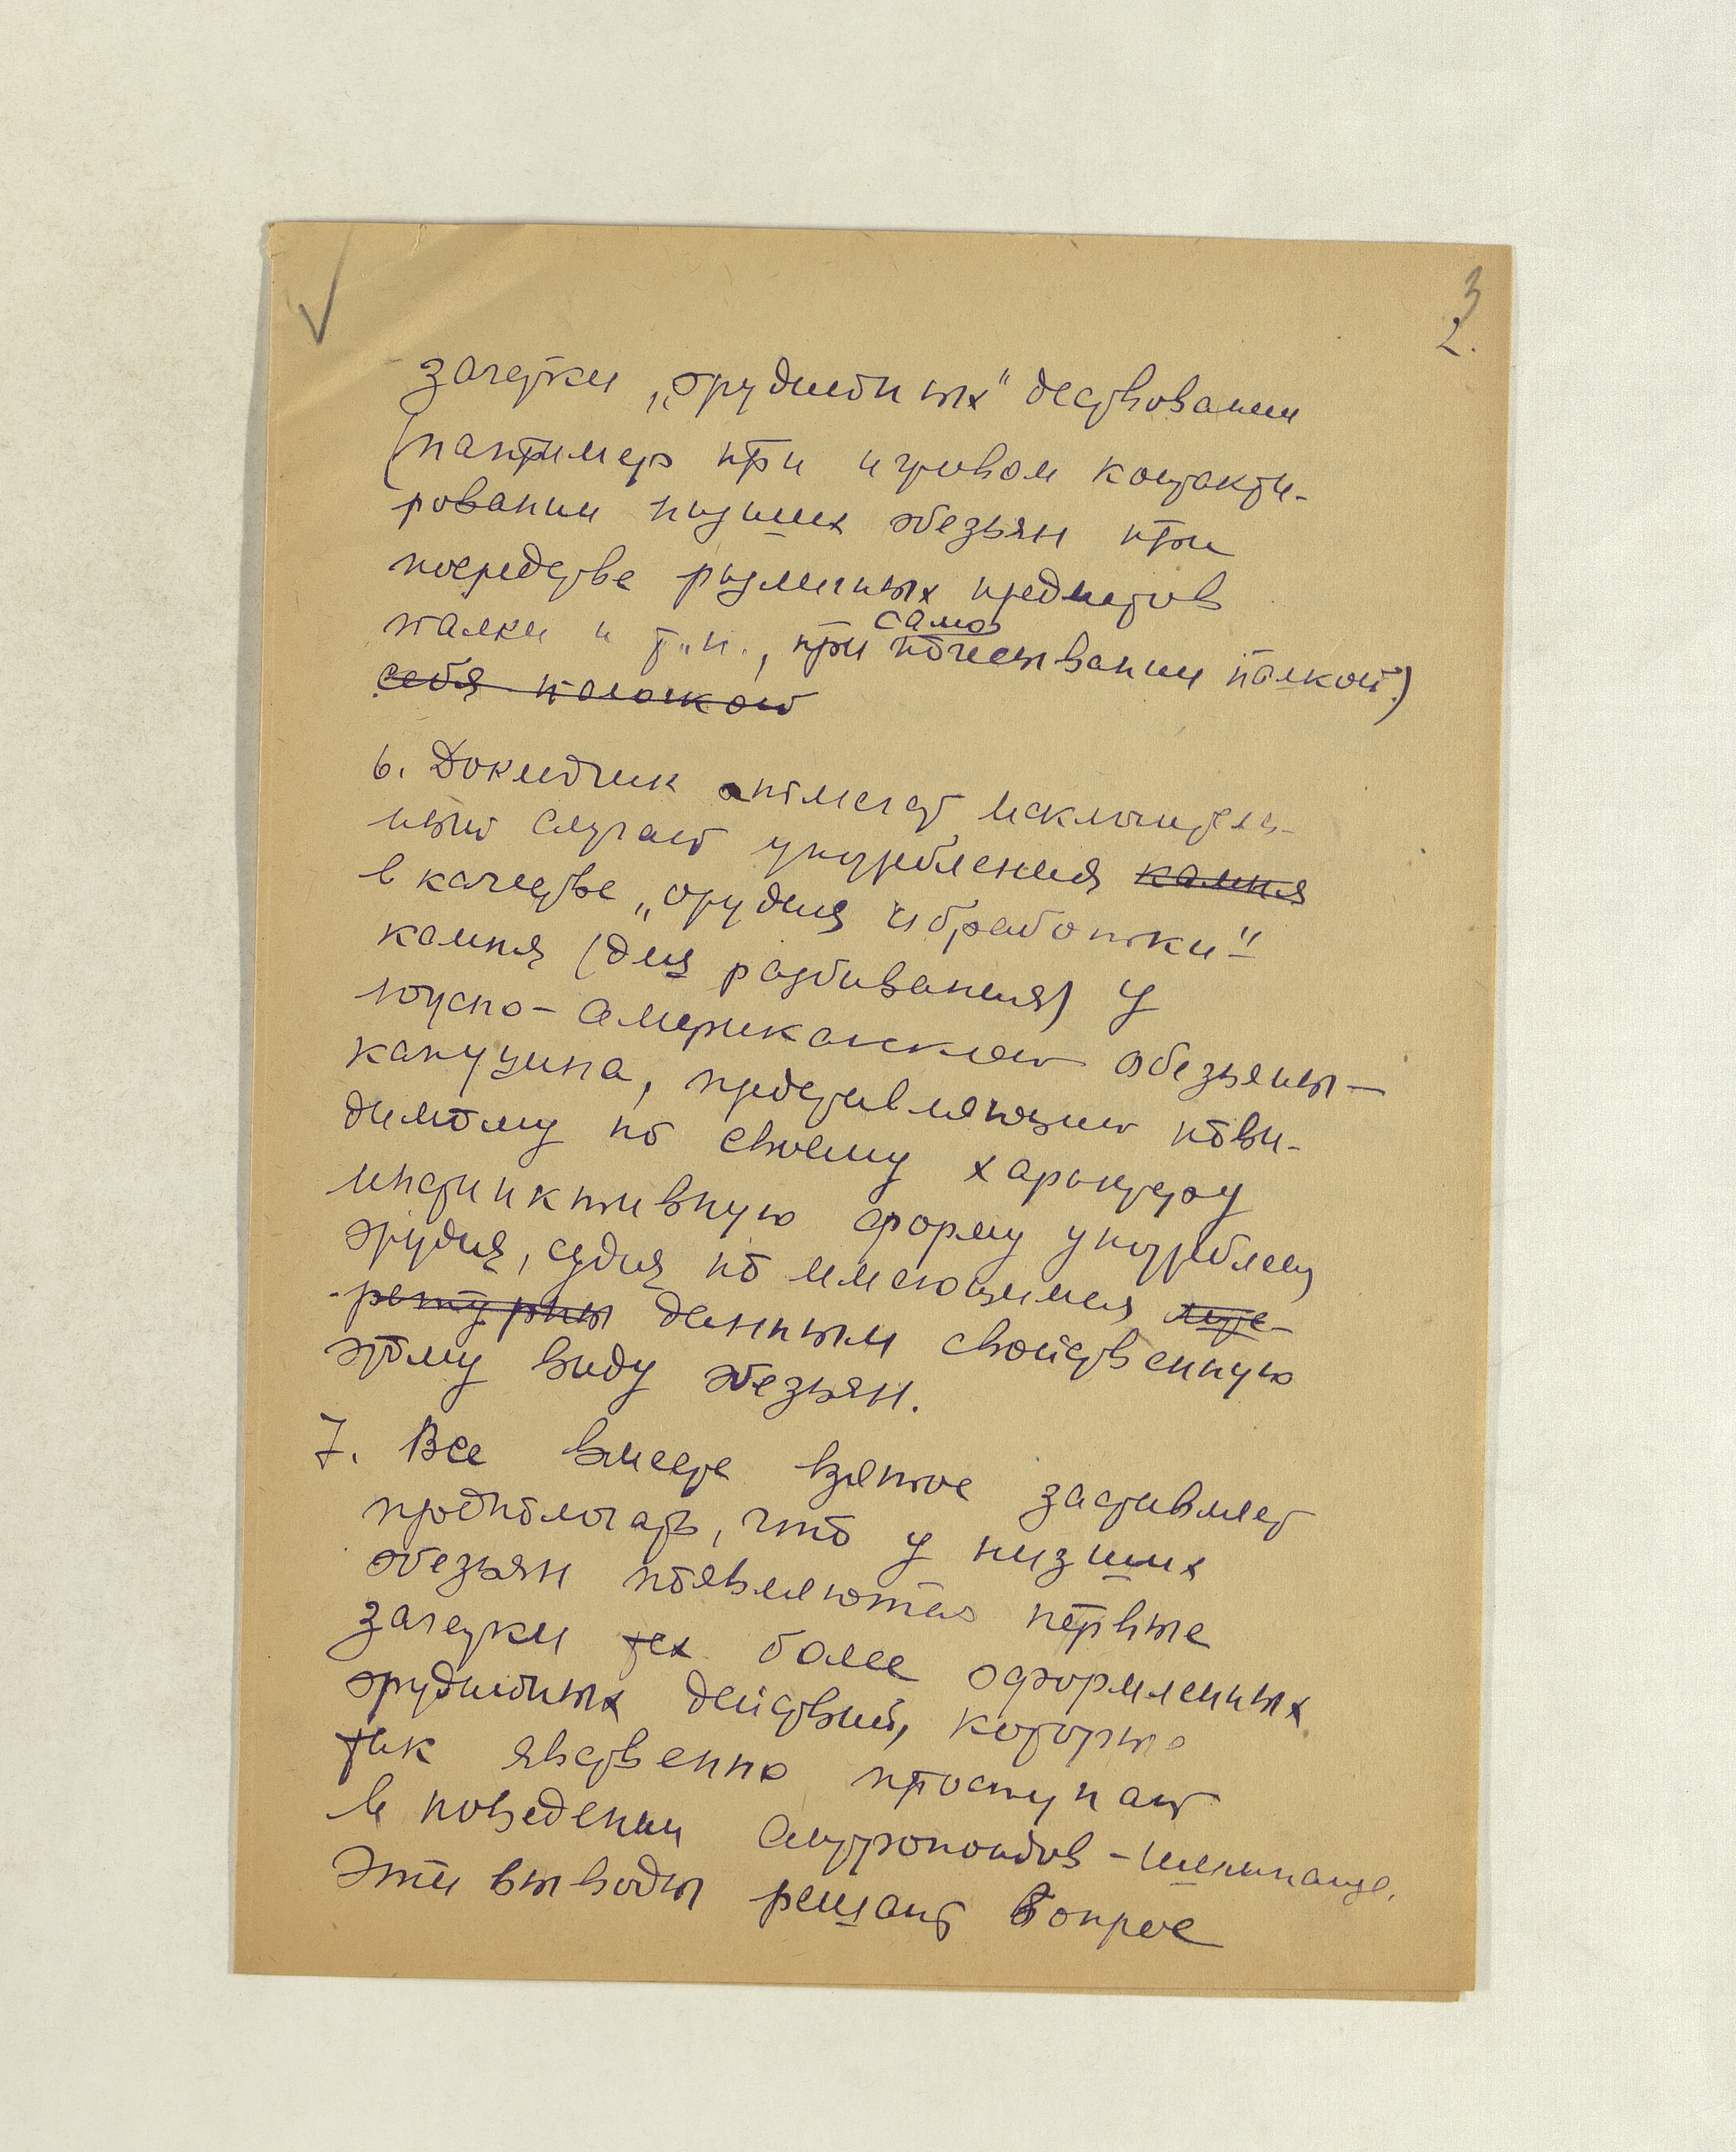 3
2.
зачатки „орудийных" действовании
(например при игровом контакти-
ровании низших обезьян при
посредстве различных предметов
само
палки и т.п., при почесывании палкой.)
себя палочкой
6. Докладчик отмечает исключитель-
ный случай употребления камня
в качестве „орудия обработки"
камня (для разбивания) у
южно-американской обезьяны-
капуцина, представляющий пови-
димому по своему характеру
инстинктивную форму употреблен
орудия, судя по имеющимся лите-
ратурны данным свойственную
этому виду обезьян.
7. Все вместе взятое заставляет
предполагать, что у низших
обезьян появляются первые
зачатки тех более оформленных
орудийных действий, которые
так явственно проступают
в поведении антропоидов - шимпанзе.
Эти выводы решают вопрос